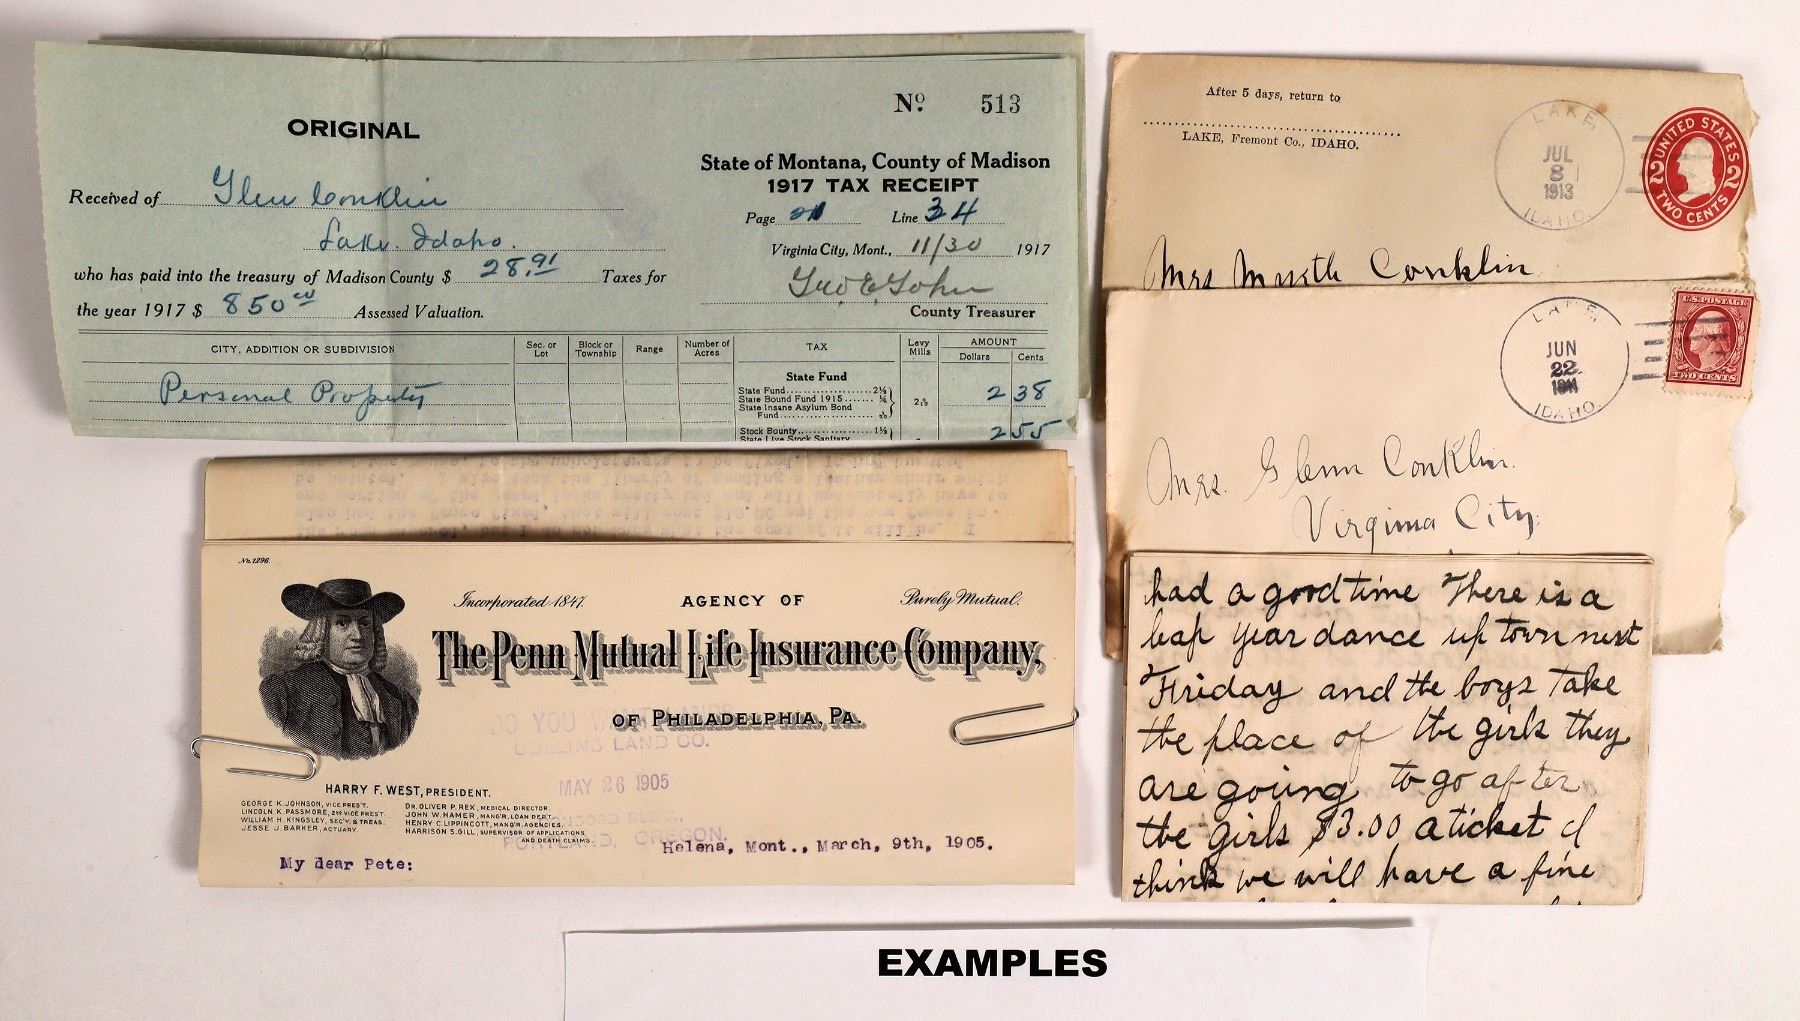 ORIGINAL
Nº 513
State of Montana, County of Madison
1917 TAX RECEIPT
Received of Glen Conklin
Lake. Idaho.
Page 21 Line 34
Virginia City, Mont., 11/30 1917
who has paid into the treasury of Madison County $ 28.91 Taxes for
the year 1917 $ 850 00 Assessed Valuation.
Geo E Gohn
County Treasurer
CITY, ADDITION OR SUBDIVISION
Sec. or Lot
Block or Township
Range
Number of Acres
TAX
Levy Mills
AMOUNT
Dollars Cents
Personal Property
State Fund
State Fund 2½
State Bound Fund 1915
State Insane Asylum Bond
Fund
2 38
Stock Bounty 1½
State Live Stock Sanitary
2 55
No. 1296.
Incorporated 1847.
AGENCY OF
Purely Mutual.
The Penn Mutual Life Insurance Company,
OF PHILADELPHIA, PA.
DO YOU WANT LANDS
COLLINS LAND CO.
MAY 26 1905
CONCORD BLDG.,
PORTLAND, OREGON.
HARRY F. WEST, PRESIDENT.
GEORGE K. JOHNSON, VICE PREST.
LINCOLN K. PASSMORE, 2ND VICE PREST.
WILLIAM H. KINGSLEY, SEC'Y. & TREAS.
JESSE J. BARKER, ACTUARY.
DR. OLIVER P. REX, MEDICAL DIRECTOR.
JOHN W. HAMER, MANG'R. LOAN DEPT.
HENRY C. LIPPINCOTT, MANG'R. AGENCIES.
HARRISON S. GILL, SUPERVISOR OF APPLICATIONS
AND DEATH CLAIMS.
Helena, Mont., March, 9th, 1905.
My dear Pete:
After 5 days, return to
LAKE, Fremont Co., IDAHO.
LAKE,
JUL
8
1913
IDAHO.
UNITED STATES
2 2
TWO CENTS
Mrs Murth Conklin
LAKE,
JUN
22
1911
IDAHO.
U.S. POSTAGE
TWO CENTS
Mrs. Glenn Conklin.
Virginia City,
had a good time There is a
leap year dance up town next
Friday and the boys take
the place of the girls they
are going to go after
the girls $3.00 a ticket I
think we will have a fine
EXAMPLES